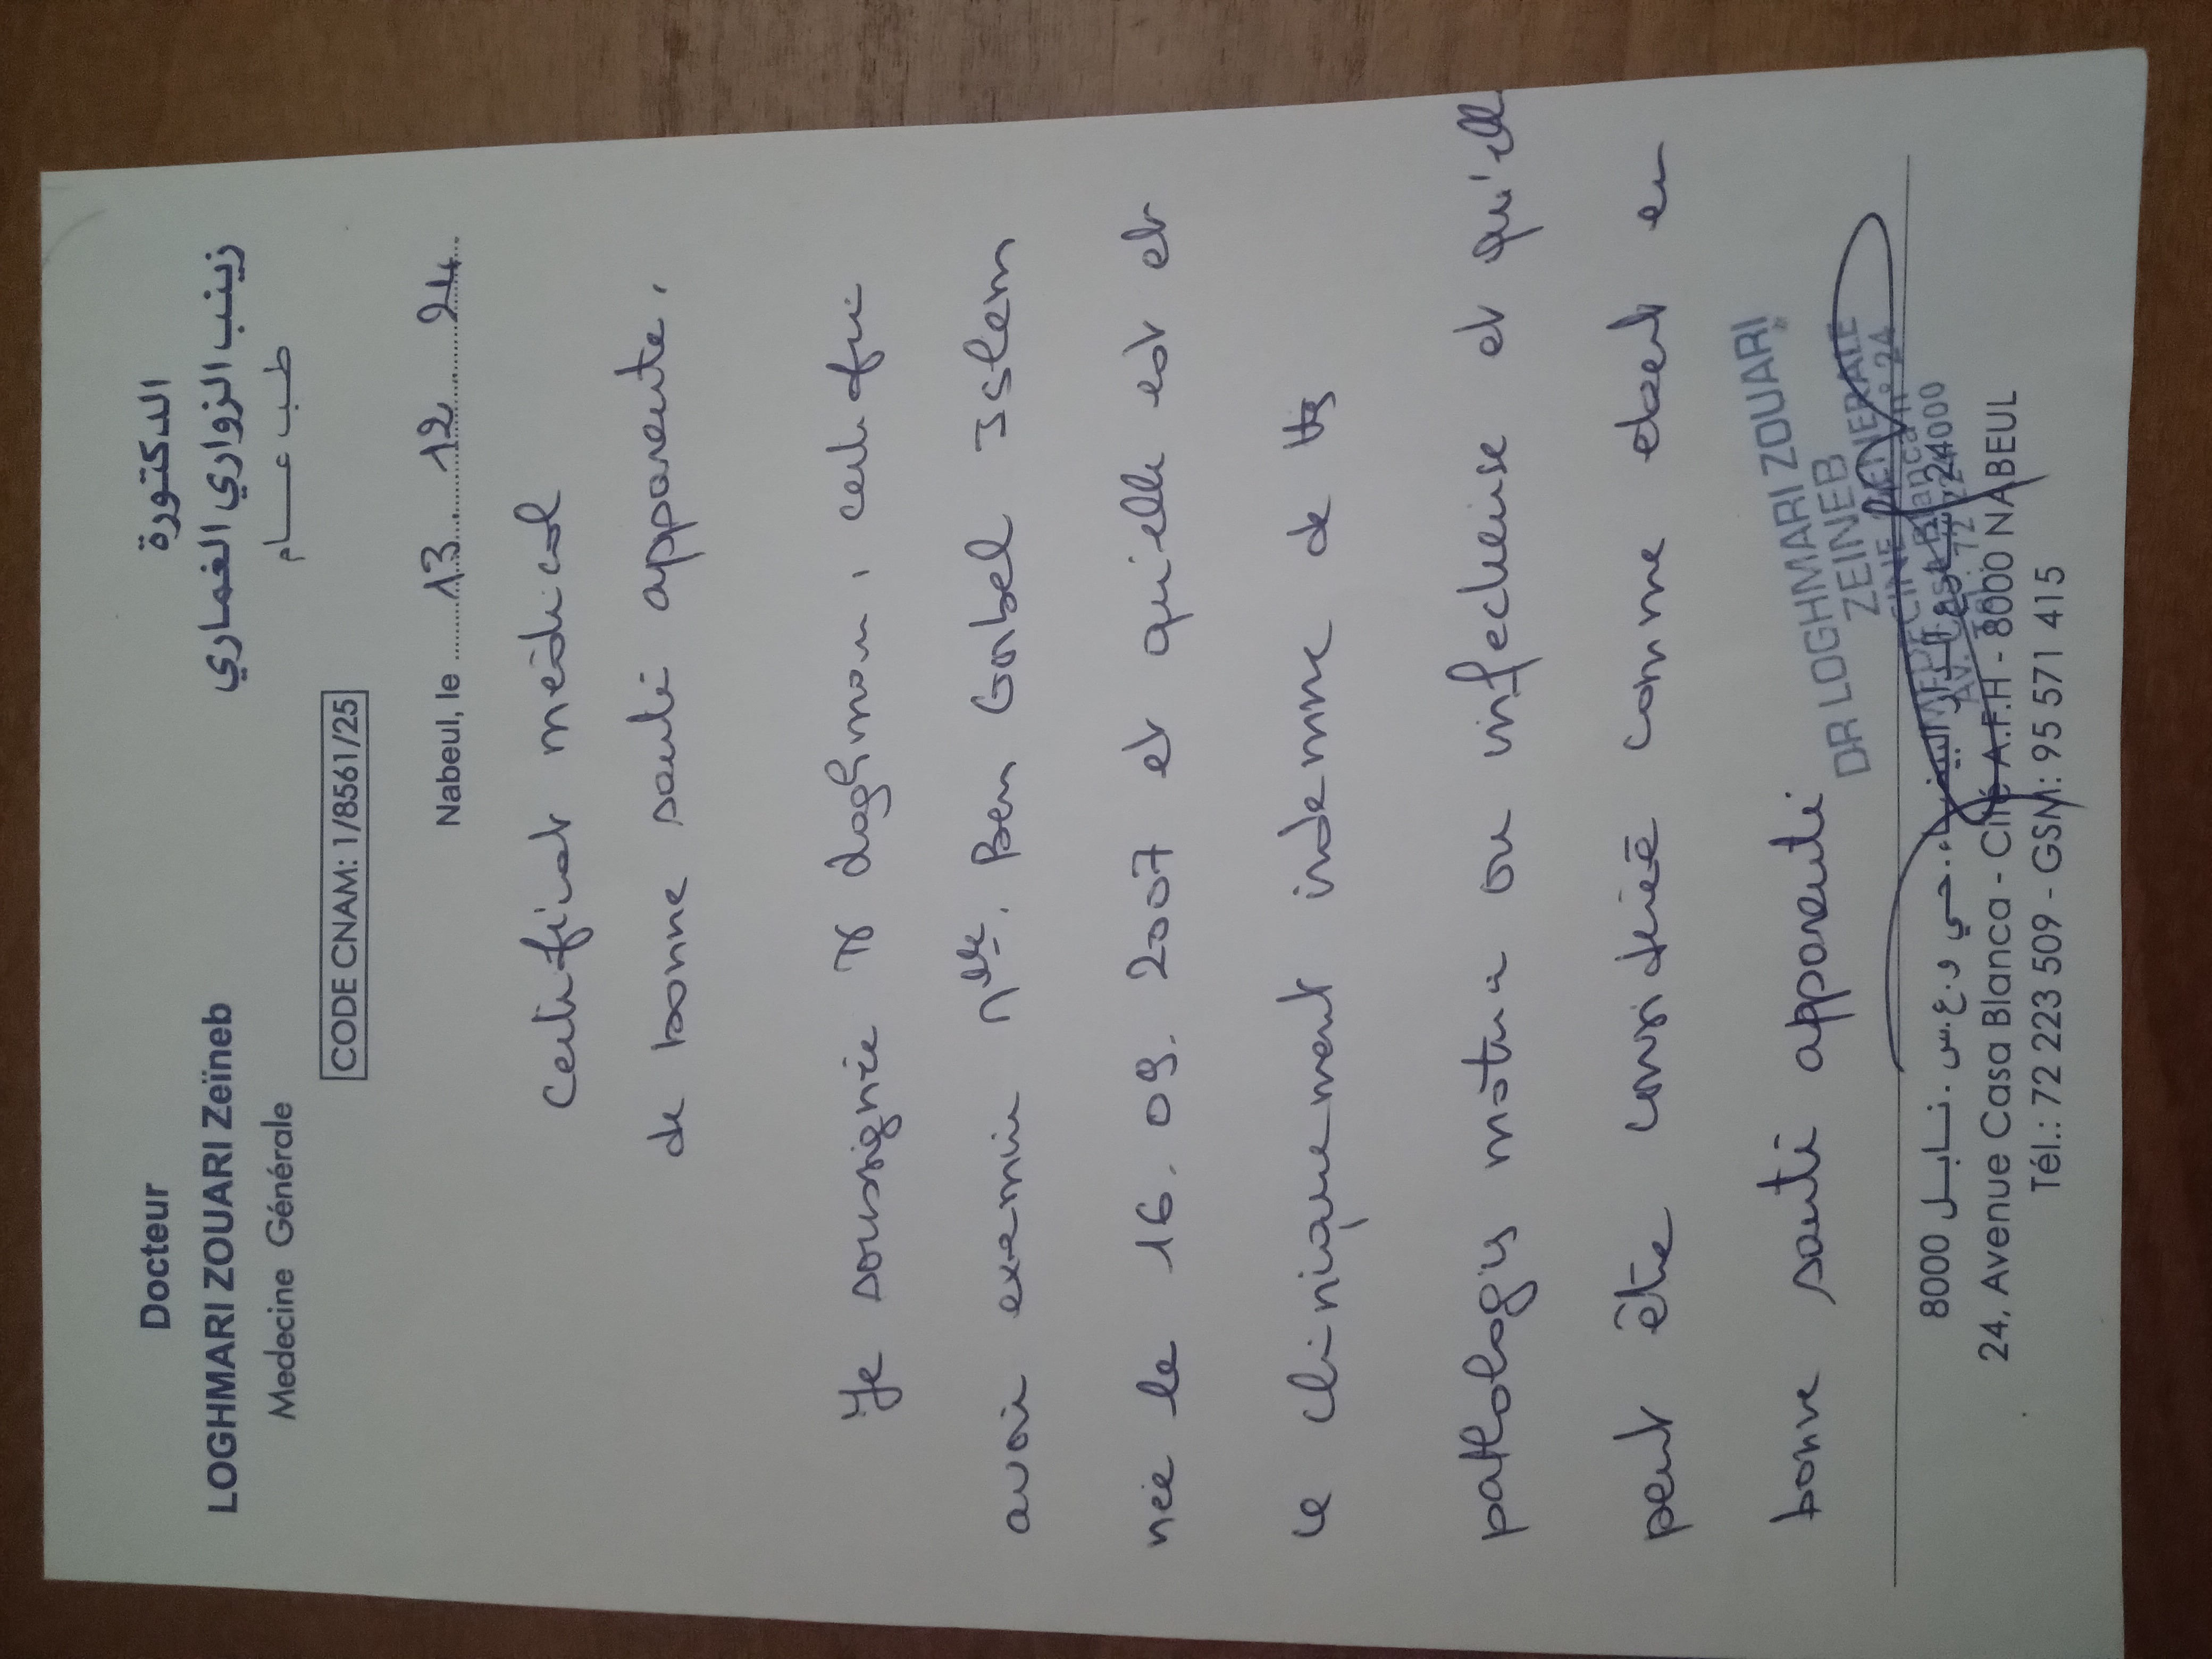 Docteur
LOGHMARI ZOUARI Zeïneb
Medecine Générale
الدكتورة
زينب الزواري الغماري
طب عام
CODE CNAM: 1/8561/25
Nabeul, le 13 12 24
Certificat médical
de bonne santé apparente.
Je soussignée Dr loghmari, certifie
avoir examiné Mlle. Ben Gorbel Islem
née le 16.09.2007 et qu'elle est et
ce cliniquement indemne de ttes
pathologies ou infectieuse et qu'elle
peut être considérée comme étant en
bonne santé apparente
DR LOGHMARI ZOUARI
ZEINEB
MEDECINE GENERALE
Av. Casa Blanca n° 24
Tél: 72 224000
24, Avenue Casa Blanca - Cité A.F.H - 8000 NABEUL
Tél.: 72 223 509 - GSM: 95 571 415